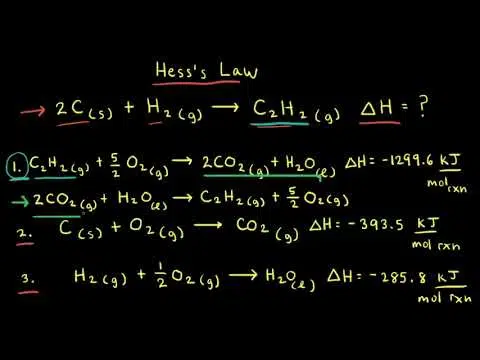 Hess's Law
→ 2C(s) + H₂(g) → C₂H₂(g) ΔH = ?
1. C₂H₂(g) + 5/2 O₂(g) → 2CO₂(g) + H₂O(l) ΔH = -1299.6 kJ/mol rxn
→ 2CO₂(g) + H₂O(l) → C₂H₂(g) + 5/2 O₂(g)
2. C(s) + O₂(g) → CO₂(g) ΔH = -393.5 kJ/mol rxn
3. H₂(g) + 1/2 O₂(g) → H₂O(l) ΔH = -285.8 kJ/mol rxn